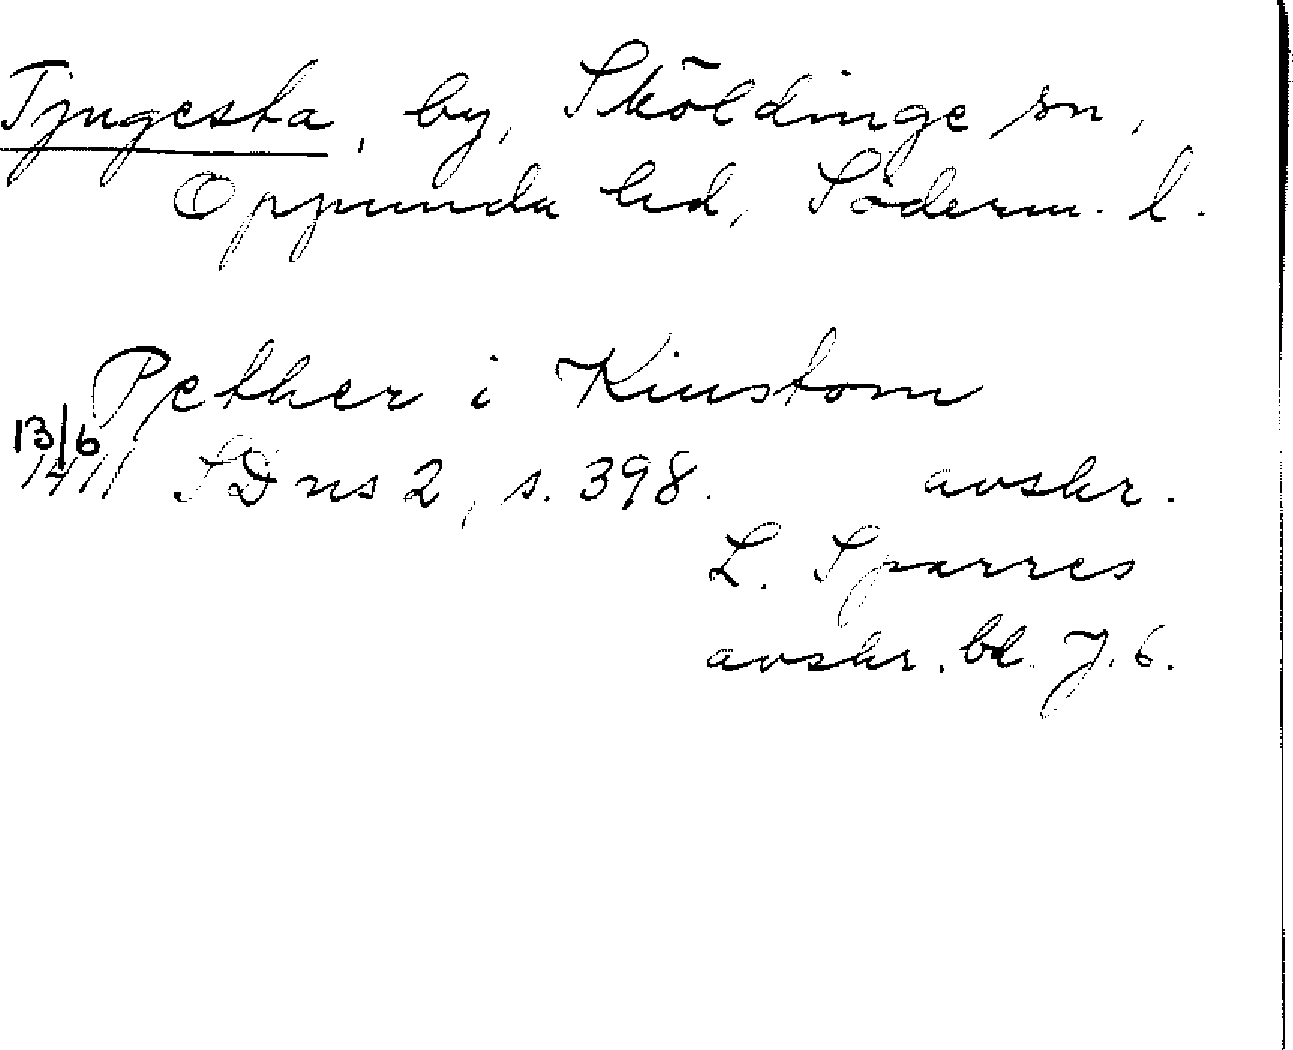 Tjugesta, by, Sköldinge sn,
Oppunda hd, Söderm. l.
Pether i Kiustom
13/6
1411 SD ns 2, s. 398. avskr.
L. Sparres
avskr. bd. J. 6.